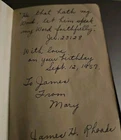 "He that hath my
word, let him speak
my word faithfully."
Jer. 23:28
With love,
on your birthday
Sept. 12, 1957
To James
From
Mary
James H. Rhodes